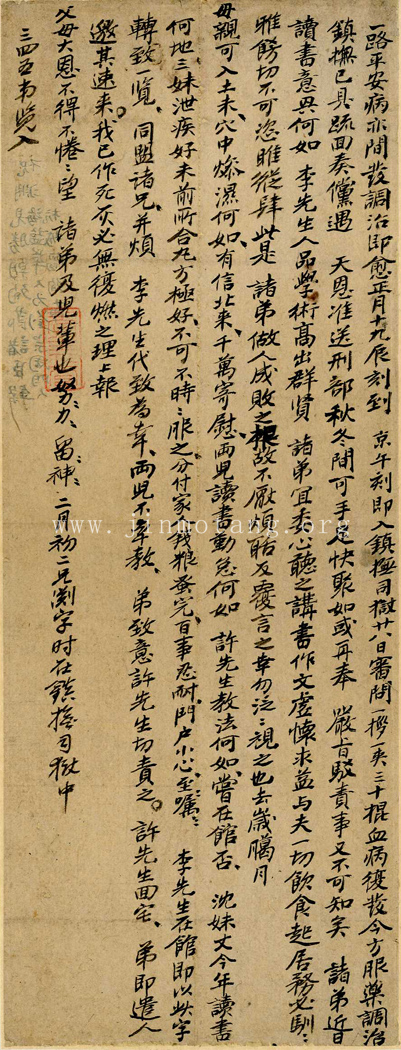 一路平安病亦間發調治即愈正月十九辰刻到 京午刻即入鎮撫司獄廿八日審問一拶一夾三十棍血病復發今方服藥調治
鎮撫已具疏面奏儻遇 天恩准送刑部秋冬間可手足快聚如或再奉 嚴旨駁責事又不可知矣 諸弟近日
讀書意興何如 李先生人品學術高出群賢 諸弟宜委心聽之講書作文虛懷求益与夫一切飲食起居務必馴〻
雅飭切不可恣睢縱肆此是 諸弟做人成敗之根故不厭煩聒反覆言之幸勿泛〻視之也去歲臈月
母親可入土未穴中燥濕何如有信北来千萬寄慰兩兒讀書動息何如 許先生教法何如嘗在館否 沈妹丈今年讀書
何地三妹泄疾好未前所合丸方極好不可不時〻服之分付家人錢粮蚤完百事忍耐門户小心至囑〻 李先生在館即以此字
轉致一覧 同盟諸兄并煩 李先生代致為幸兩兒不率教 弟致意許先生切責之 許先生面宅 弟即遣人
邀其速来我已作死灰必無復燃之理上報
父母大恩不得不惓〻望 諸弟及兒輩也努力〻留神〻二月初二兄渕字时在鎮撫司獄中
三四五弟覧入
www.jinmotang.org